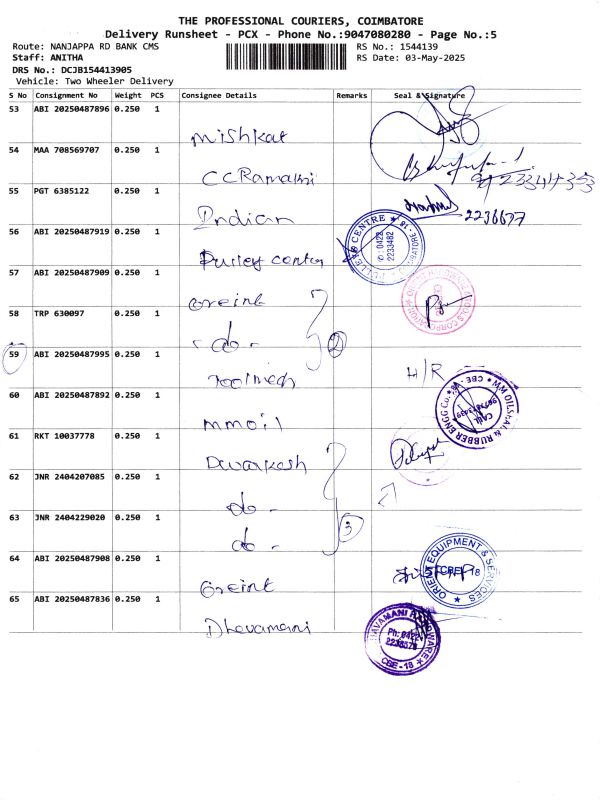 THE PROFESSIONAL COURIERS, COIMBATORE
Delivery Runsheet - PCX - Phone No.:9047080280 - Page No.:5
Route: NANJAPPA RD BANK CMS
RS No.: 1544139
Staff: ANITHA
RS Date: 03-May-2025
DRS No.: DCJB154413905
Vehicle: Two Wheeler Delivery
S No Consignment No Weight PCS Consignee Details Remarks Seal & Signature
53 ABI 20250487896 0.250 1
Mishkat
54 MAA 708569707 0.250 1
CC Ramakni
55 PGT 6385122 0.250 1
Indian
2236677
56 ABI 20250487919 0.250 1
Pulley center
CENTRE
0422
2233482
57 ABI 20250487909 0.250 1
Oreint
58 TRP 630097 0.250 1
- do -
2
59 ABI 20250487995 0.250 1
Toolmech
H/R
60 ABI 20250487892 0.250 1
mmoil
MM OILSEAL & RUBBER ENGG Co.
61 RKT 10037778 0.250 1
Dwarkesh
62 JNR 2404207085 0.250 1
do -
63 JNR 2404229020 0.250 1
do -
3
64 ABI 20250487908 0.250 1
Oreint
ORIENT EQUIPMENT & SERVICES
65 ABI 20250487836 0.250 1
Dhavamani
DHAVAMANI HARDWARE
Ph: 0422
CBE - 18